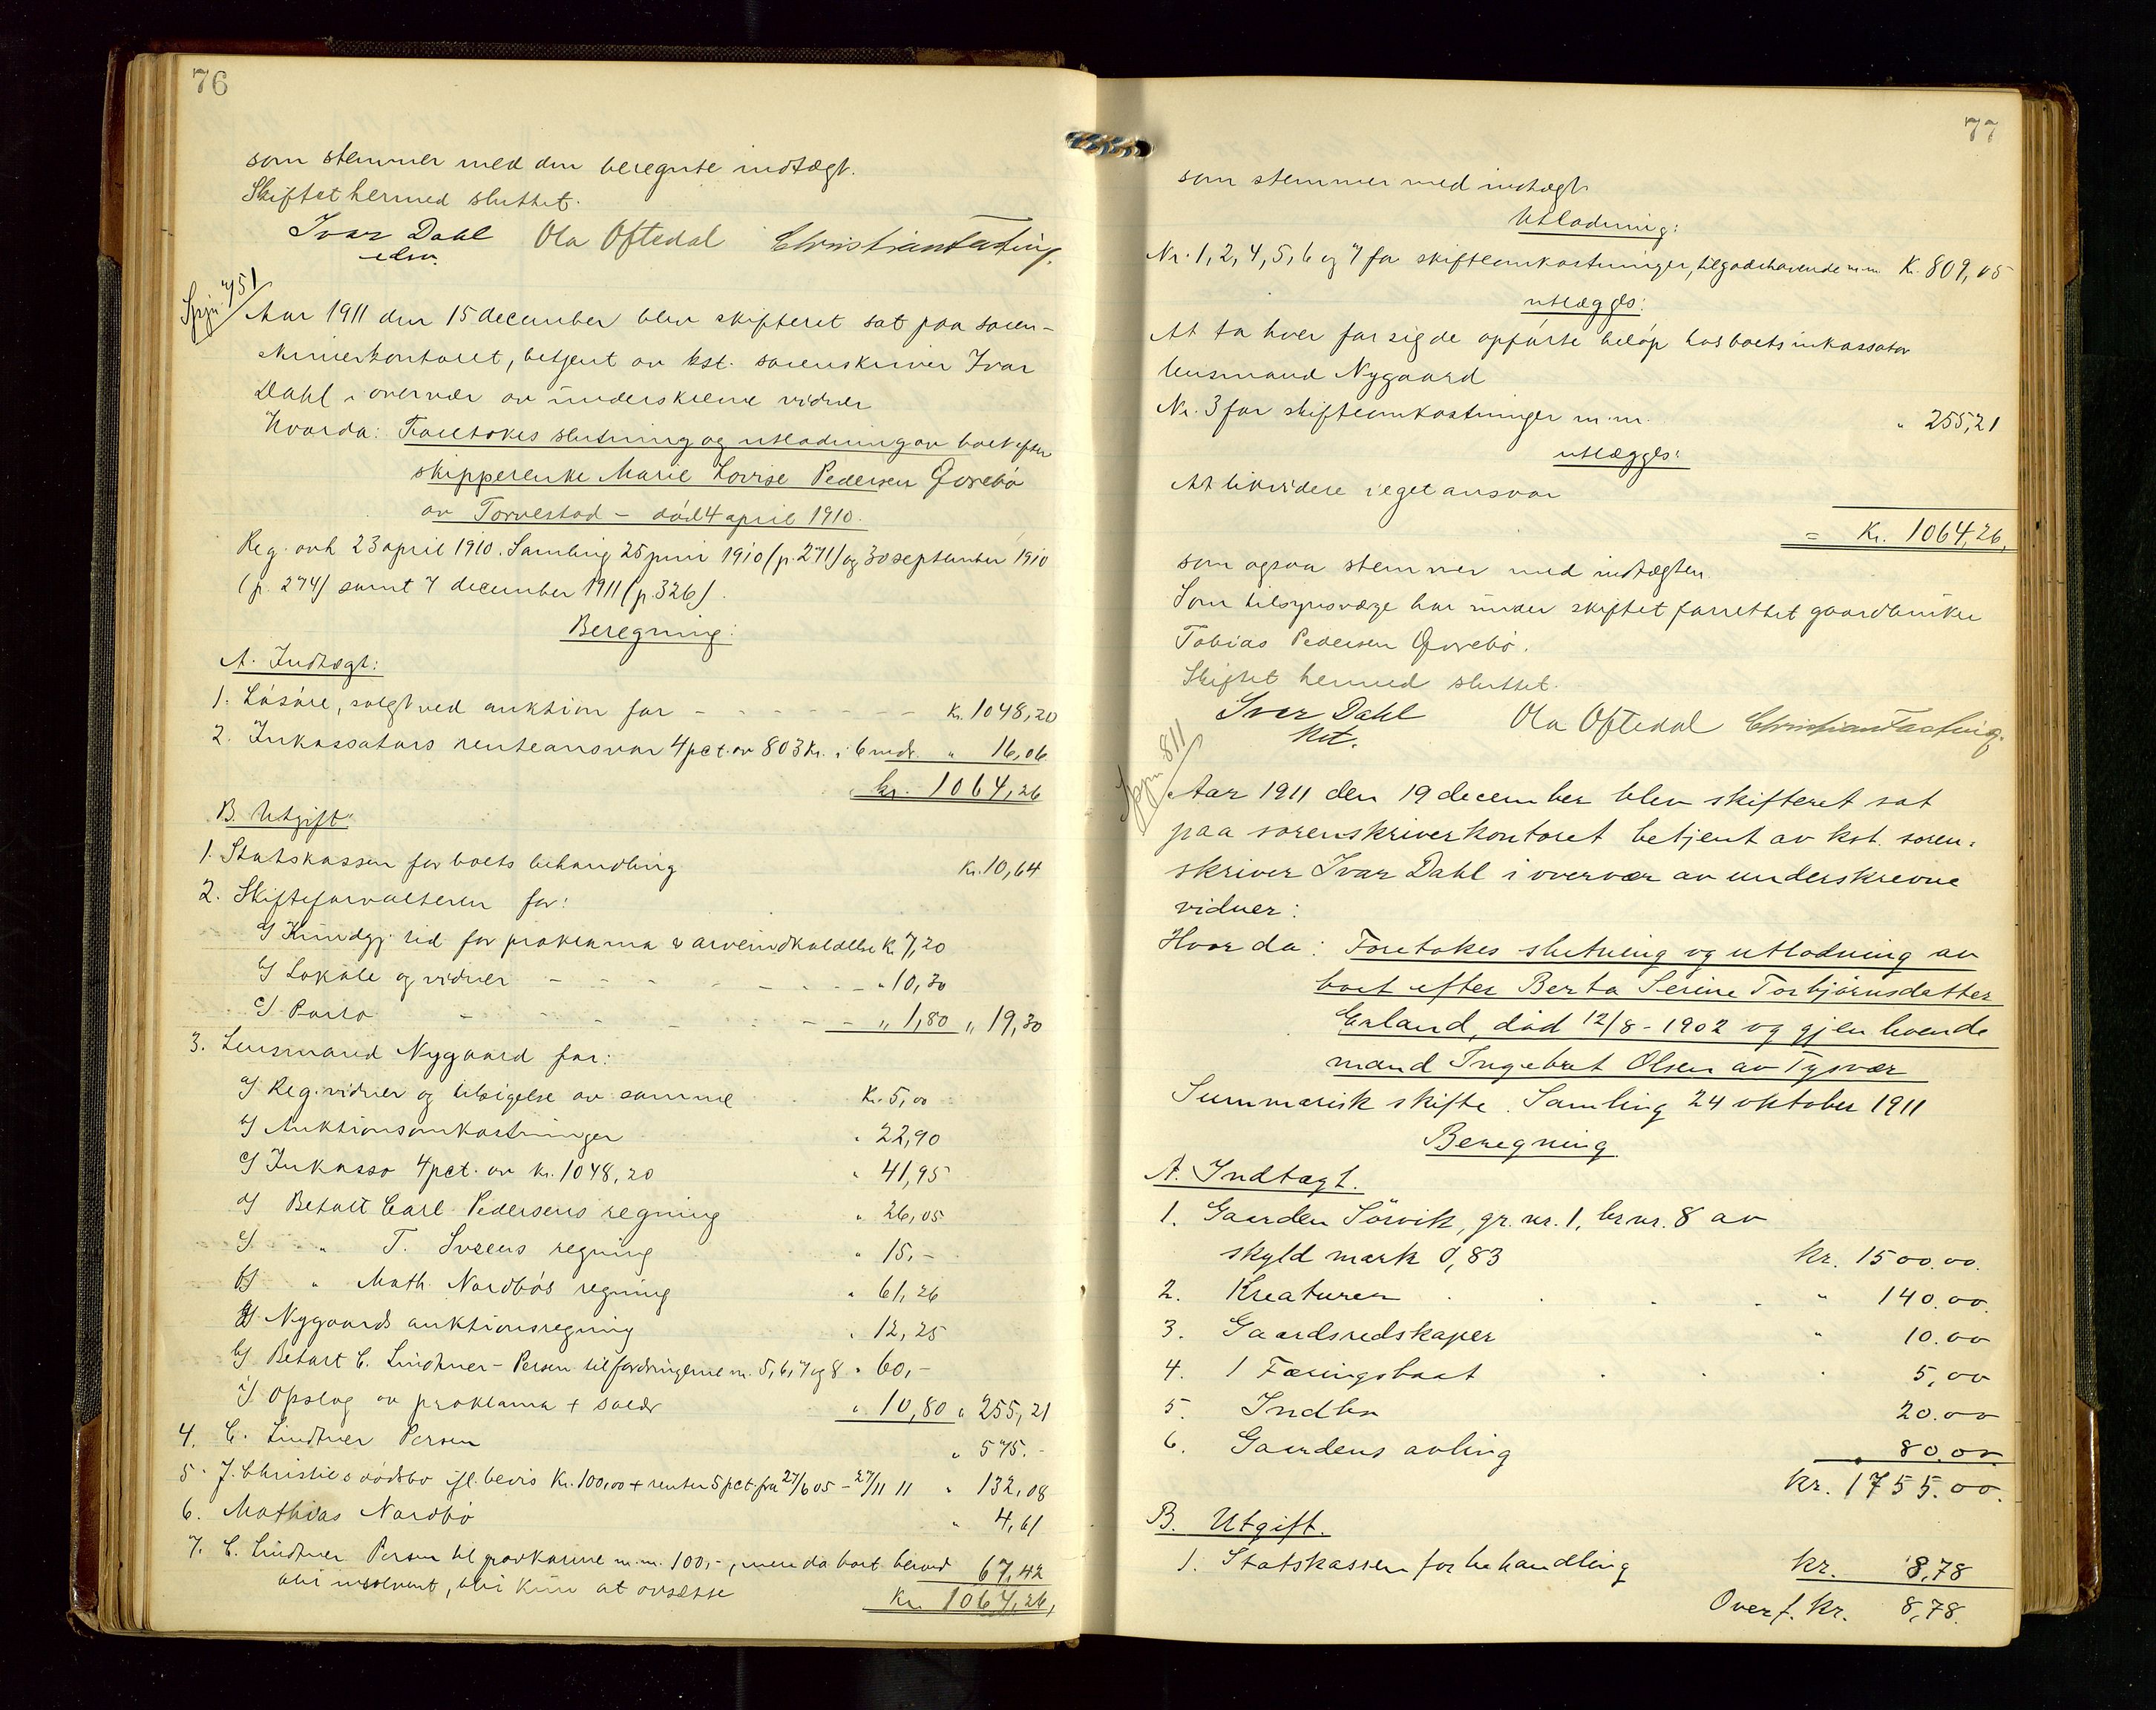 76
som stemmer med den beregnte indtægt.
Skiftet hermed sluttet.
Ivar Dahl Ola Oftedal Christian Fasting.
edsv.
Aar 1911 den 15 december blev skifteret sat paa soren-
skriverkontoret, betjent av kst. sorenskriver Ivar
Dahl i overvær av underskrevne vidner
Hvorda: Foretokes slutning og utlodning av boet efter
skipperenke Marie Lovise Pedersen Govebø
av Torvestad - død 4 april 1910.
Reg. avh 23 april 1910. Samling 25 juni 1910 (p. 271) og 30 september 1910
(p. 274) samt 7 december 1911 (p. 326).
Beregning:
A. Indtægt:
1. Løsøre, solgt ved auktion for - - - - - - - Kr. 1048,20
2. Inkassators renteansvar 4 pct. av 803 Kr. i 6 mdr. " 16,06
kr. 1064,26
B. Utgift
1. Statskassen for boets behandling Kr. 10,64
2. Skifteforvalteren for:
a) Kundgj. tid for proklama & arveindkaldelse K 7,20
b) Lokale og vidner - - - - - - - " 10,30
c) Porto - - - - - - - " 1,80 " 19,30
3. Lensmand Nygaard for:
a) Reg. vidner og tilsigelse av samme Kr. 5,00
b) Auktionsomkostninger " 22,90
c) Inkasso 4 pct. av kr. 1048,20 " 41,95
d) Betalt Carl Pedersens regning " 26,05
e) " T. regning " 15.-
f) " Math. Nordbøs regning " 61,26
g) Nygaards auktionsregning " 12,25
h) Betalt C. Lindtner-Persen til fordringerne nr. 5,6,7 og 8 " 60,-
i) Opslag av proklama + " 10,80 " 255,21
4. C. Lindtner Persen " 575.-
5. J. Christies dødsbo ifl. bevis Kr. 100,00 + renter 5 pct. fra 27/6 05 - 27/11 11 " 132,08
6. Mathias Nordbø " 4,61
7. C. Lindtner Persen til gravkarme m.m. 100,-, men da boet
insolvent, blir kun at avsætte 67,42
Kr. 1064,26,
77
som stemmer med indtægt
Utlodning:
Nr. 1, 2, 4, 5, 6 og 7 for skifteomkostninger, tilgodehavende m.m Kr. 809,05
utlægges:
At ta hver for sig de opførte beløp hos boets inkassator
lensmand Nygaard
Nr. 3 for skifteomkostninger m.m. " 255,21
utlægges:
At likvidere i eget ansvar
= Kr. 1064,26,
som ogsaa stemmer med indtægten.
Som tilsynsværge har under skiftet forrettet gaardbruker
Tobias Pedersen Govebø.
Skiftet hermed sluttet.
Ivar Dahl Ola Oftedal Christian Fasting.
kst.
Aar 1911 den 19 december blev skifteret sat
paa sorenskriverkontoret betjent av kst. soren-
skriver Ivar Dahl i overvær av underskrevne
vidner:
Hvor da: Foretokes slutning og utlodning av
boet efter Berta Serine Torbjørnsdatter
Erland, død 12/8-1902 og gjenlevende
mand Ingebret Olsen av Tysvær
Summarisk skifte. Samling 24 oktober 1911
Beregning
A. Indtægt.
1. Gaarden Sörvik, gr. nr. 1, br.nr. 8 av
skyld mark 0,83 kr. 1500.00.
2. Kreaturer " 140.00.
3. Gaardsredskaper " 10.00
4. 1 Færingsbaat 5,00
5. Indbo 20.00
6. Gaardens avling 80.00.
kr. 1755.00.
B. Utgift.
1. Statskassen for behandling kr. 8,78
Overf. kr. 8,78.